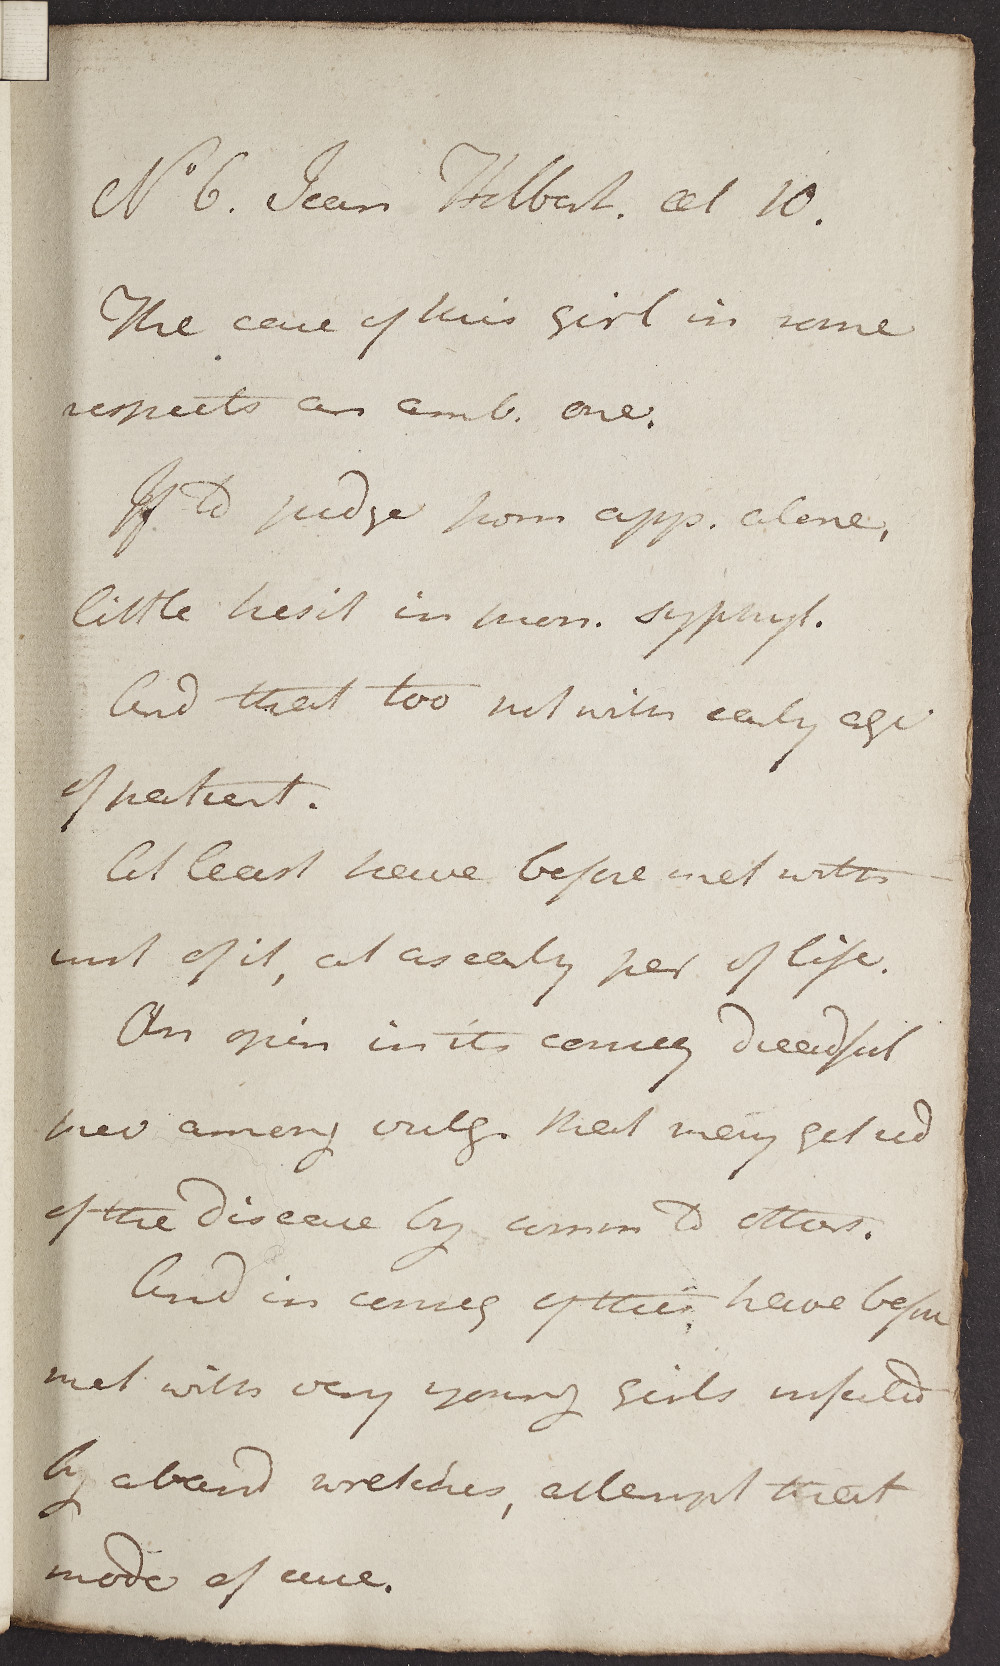 No 6. Jean Hilbert. aet 10.
The case of this girl in some
respects an amb. one.
If to judge from app. alone,
little hesit in pron. syphyl.
And that too not with early age
of patient.
At least have before met with
inst of it, at as early per of life.
An opin in its conseq dreadful
prev among vulg. that may get rid
of the disease by comm to others.
And in conseq of this, have before
met with very young girls infected
by aband wretches, attempt that
mode of cure.